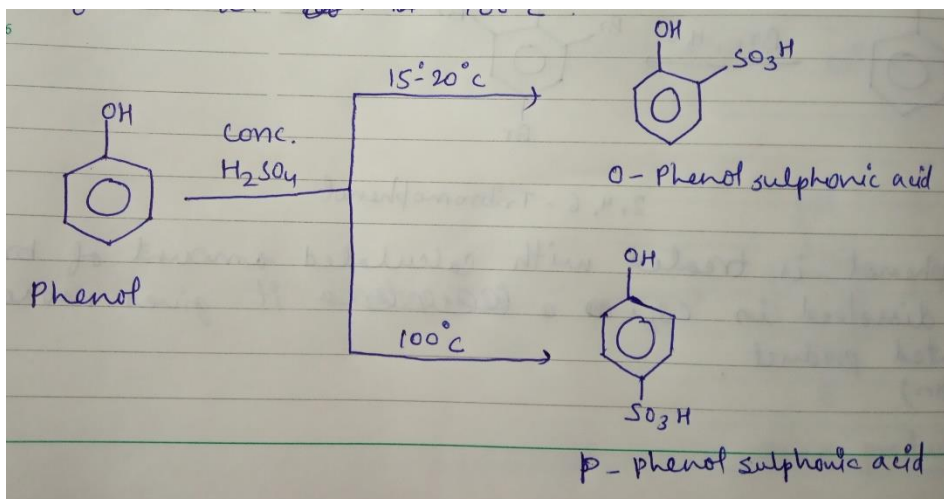 100°C.
OH
conc.
H2SO4
Phenol
15°-20°C
OH
SO3H
O- Phenol sulphonic acid
100°C
OH
SO3H
p- phenol sulphonic acid